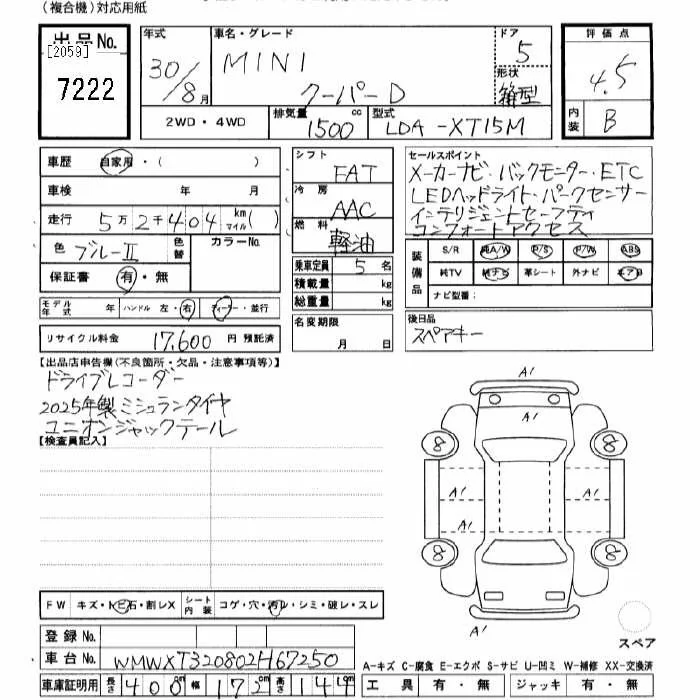 (複合機)対応用紙
出品No.
[2059]
7222
年式
30/8月
車名・グレード
MINI
クーパーD
ドア
5
形状
箱型
評価点
4.5
内装
B
2WD・4WD
排気量
1500cc
型式
LDA-XT15M
車歴
自家用・( )
車検 年 月
走行
5万2千404km( )
マイル
色
ブルーII
色替
カラーNo.
保証書
有・無
モデル年式 年
ハンドル 左・右
ディーラー・並行
リサイクル料金
17,600円預託済
シフト
FAT
冷房
AAC
燃料
軽油
乗車定員 5名
積載量 kg
総重量 kg
名変期限
月 日
セールスポイント
メーカーナビ・バックモニター・ETC
LEDヘッドライト・パークセンサー
インテリジェントセーフティ
コンフォートアクセス
装備品
S/R 純A/W P/S P/W ABS
純TV 純ナビ 革シート 外ナビ エアB
ナビ型番:
後日品
スペアキー
【出品店申告欄(不良箇所・欠品・注意事項等)】
ドライブレコーダー
2025年製ミシュランタイヤ
ユニオンジャックテール
【検査員記入】
A1
A1
8
8
A1
A1
A1
8
8
A1
スペア
FW キズ・トビ石・割レX
シート内装 コゲ・穴・汚レ・シミ・破レ・スレ
登録No.
車台No.
WMWXT320802H67250
車庫証明用
長さ 400 幅 172 高さ 144
A-キズ C-腐食 E-エクボ S-サビ U-凹ミ W-補修 XX-交換済
工具 有・無 ジャッキ 有・無